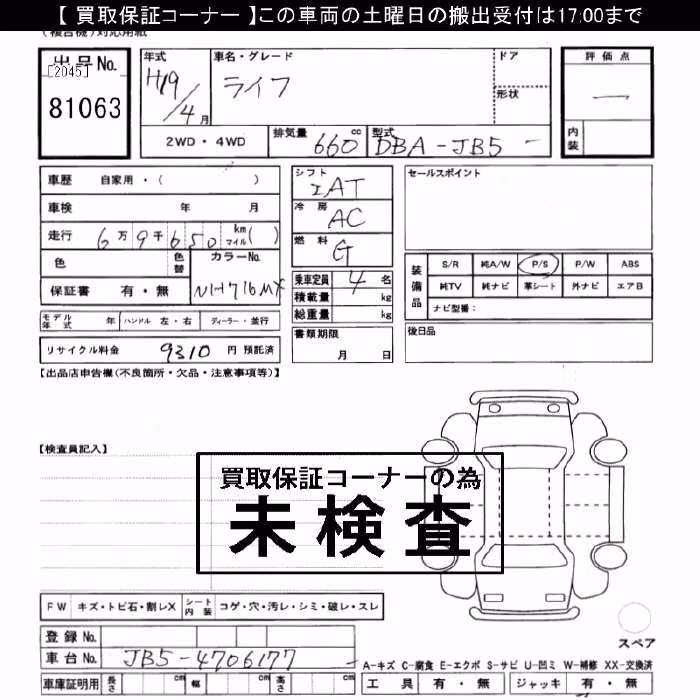 【 買取保証コーナー 】この車両の土曜日の搬出受付は17:00まで
(複合機)対応用紙
出品No. [2045] 81063
年式 H19/4月
車名・グレード ライフ
ドア 形状
評価点 —
内装
2WD・4WD
排気量 660 cc
型式 DBA-JB5-
車歴 自家用・( )
車検 年 月
走行 6万9千650 km マイル( )
色 色替 カラーNo. NH716MX
保証書 有・無
シフト IAT
冷房 AC
燃料 G
乗車定員 4 名
積載量 kg
総重量 kg
セールスポイント
装備品 S/R 純A/W P/S P/W ABS
純TV 純ナビ 革シート 外ナビ エアB
ナビ型番:
モデル年式 年 ハンドル 左・右 ディーラー・並行
書類期限 月 日
後日品
リサイクル料金 9310 円 預託済
【出品店申告欄(不良箇所・欠品・注意事項等)】
【検査員記入】
買取保証コーナーの為
未検査
FW キズ・トビ石・割レX シート内装 コゲ・穴・汚レ・シミ・破レ・スレ
スペア
登録No.
車台No. JB5-4706177
A-キズ C-腐食 E-エクボ S-サビ U-凹ミ W-補修 XX-交換済
車庫証明用 長さ cm 幅 cm 高さ cm
工具 有・無 ジャッキ 有・無